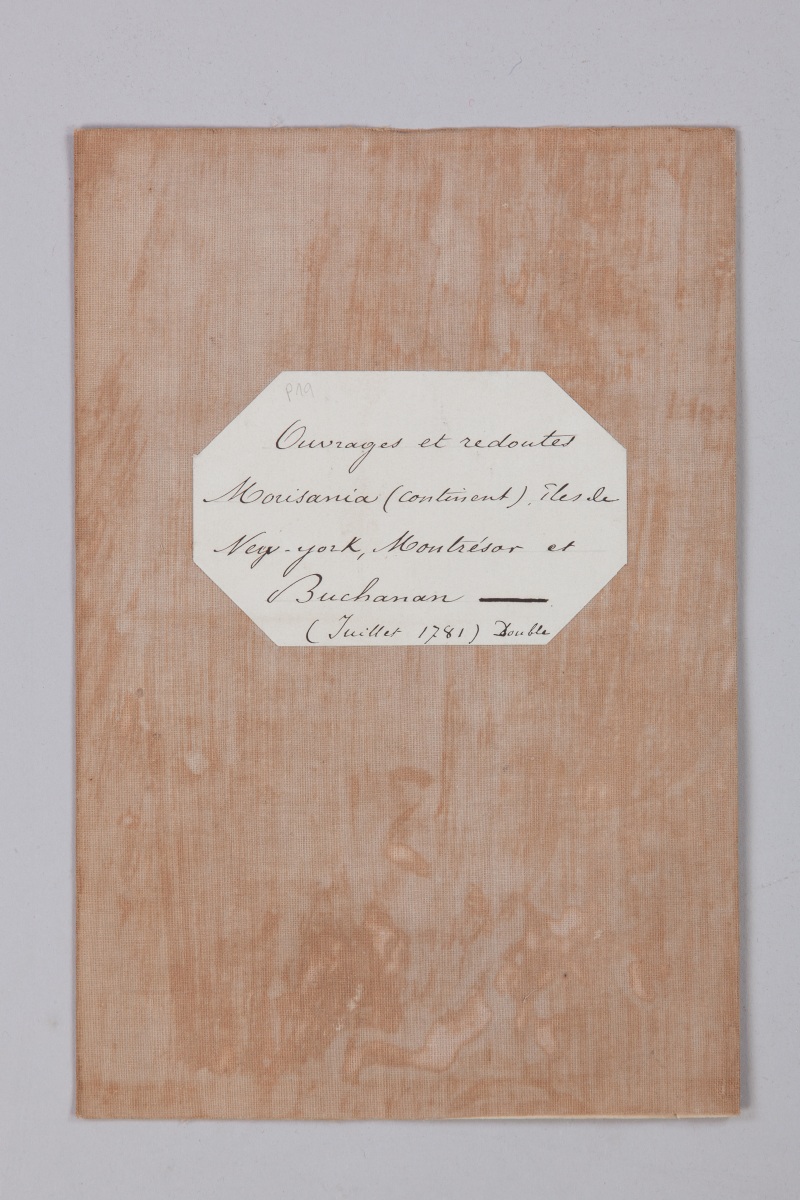 P19
Ouvrages et redoutes
Morisania (continent), îles de
New-york, Montrésor et
Buchanan —
(Juillet 1781) Double